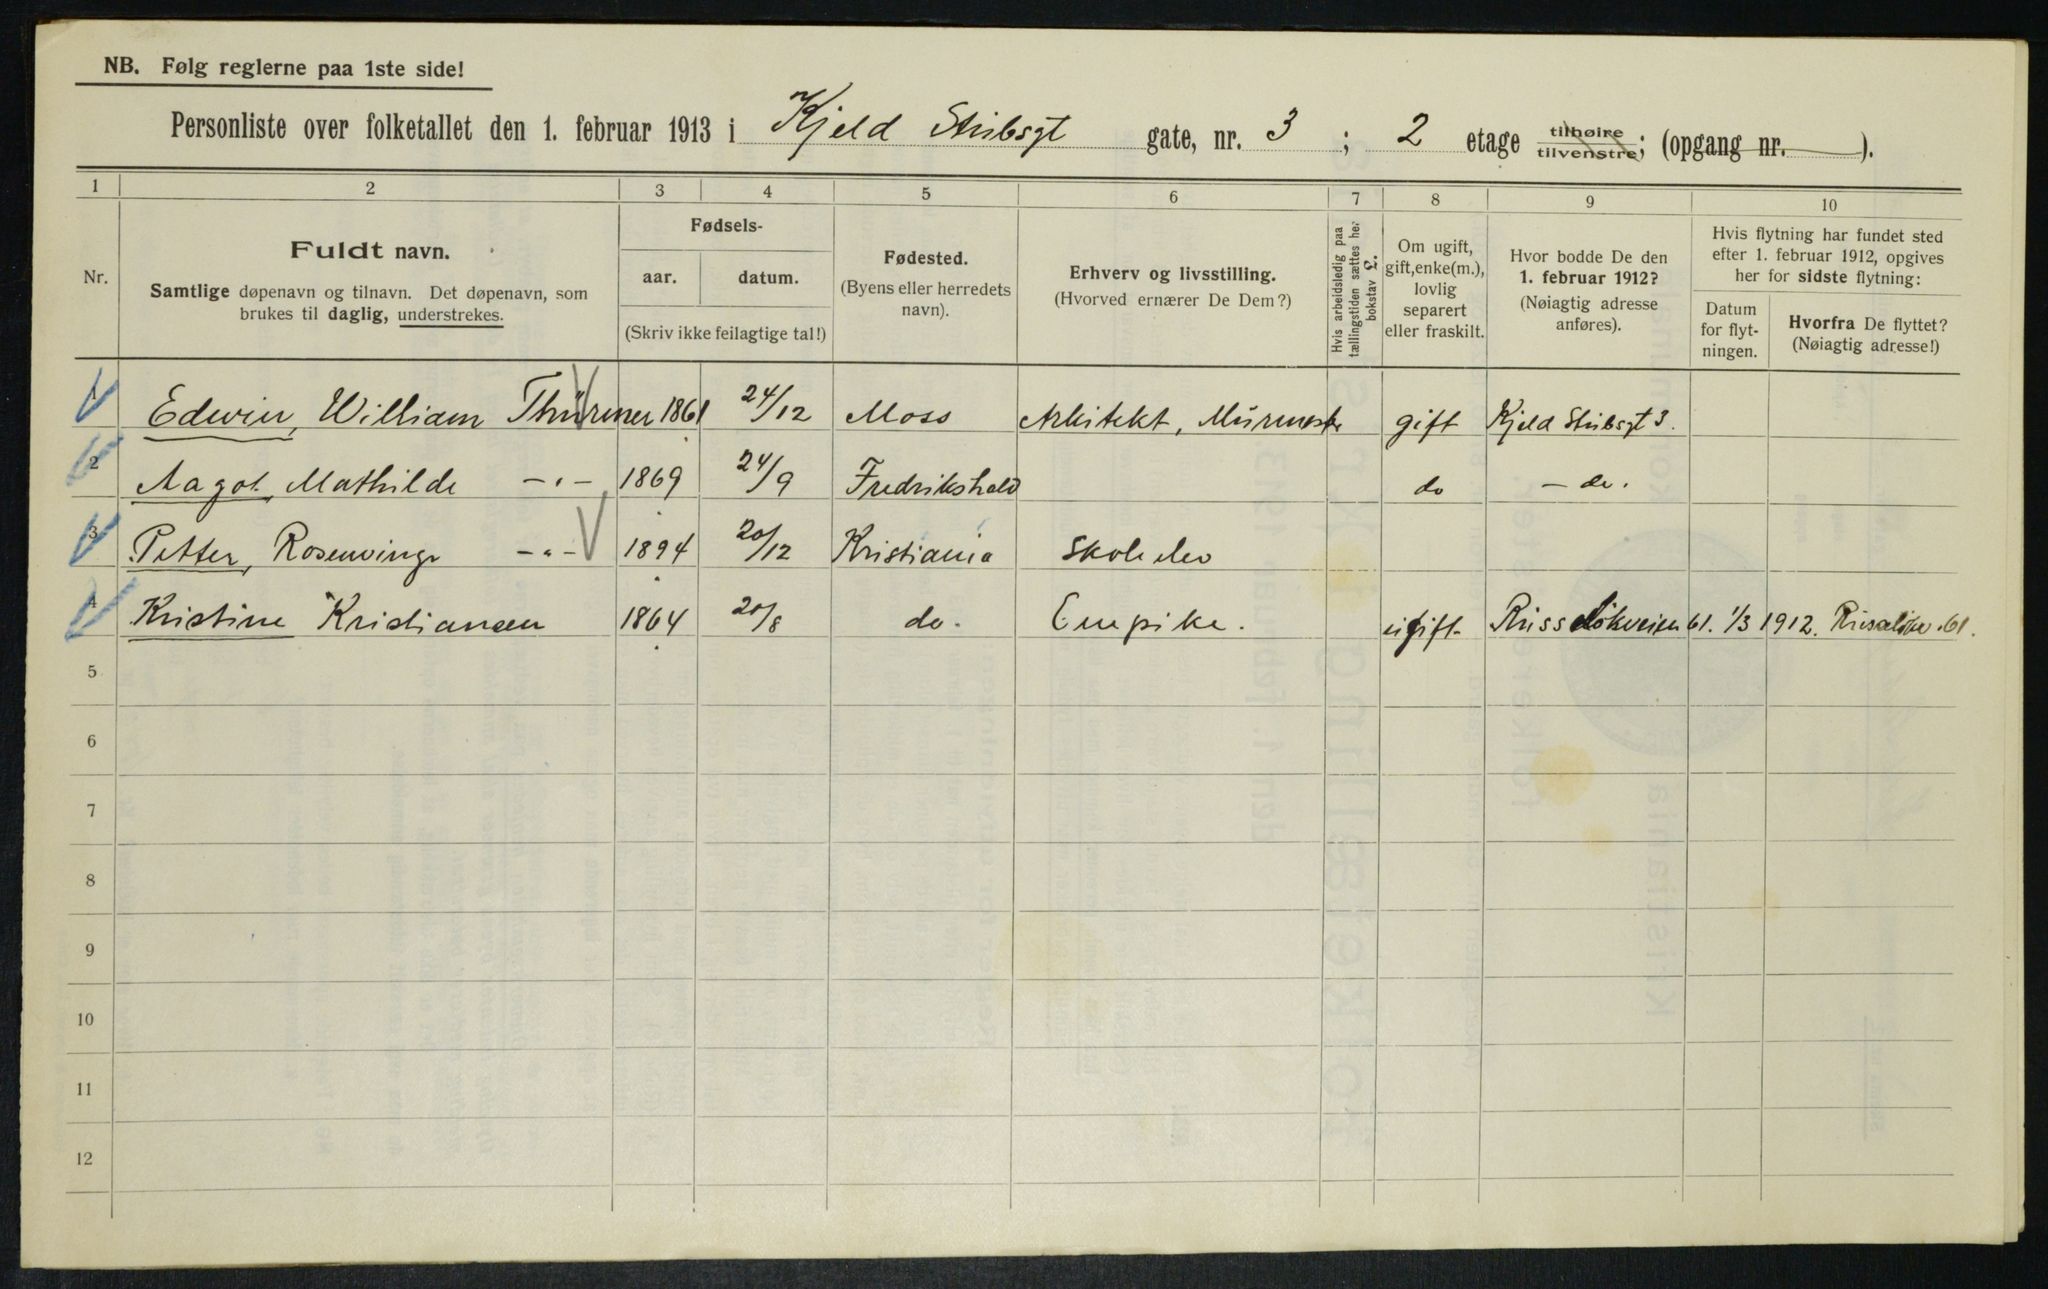 NB. Følg reglerne paa 1ste side!
Personliste over folketallet den 1. februar 1913 i Kjeld Stubsgt gate, nr. 3 ; 2 etage tilhøire tilvenstre; (opgang nr. — ).
1 2 3 4 5 6 7 8 9 10
Nr.
Fuldt navn.
Samtlige døpenavn og tilnavn. Det døpenavn, som
brukes til daglig, understrekes.
Fødsels-
aar. datum.
(Skriv ikke feilagtige tal!)
Fødested.
(Byens eller herredets
navn).
Erhverv og livsstilling.
(Hvorved ernærer De Dem?)
Hvis arbeidsledig paa
tællingstiden sættes her
bokstav L.
Om ugift,
gift, enke(m.),
lovlig
separert
eller fraskilt.
Hvor bodde De den
1. februar 1912?
(Nøiagtig adresse
anføres).
Hvis flytning har fundet sted
efter 1. februar 1912, opgives
her for sidste flytning:
Datum
for flyt-
ningen.
Hvorfra De flyttet?
(Nøiagtig adresse!)
1 Edwin, William Thürmer 1861 24/12 Moss Arkitekt, Murmester gift Kjeld Stubsgt 3.
2 Aagot, Mathilde -"- 1869 24/9 Fredrikshald do - do.
3 Petter, Rosenvinge -"- 1894 20/12 Kristiania Skoleelev
4 Kristine Kristiansen 1864 20/8 do. Enepike. ugift 61. 1/3 1912. 61.
5
6
7
8
9
10
11
12